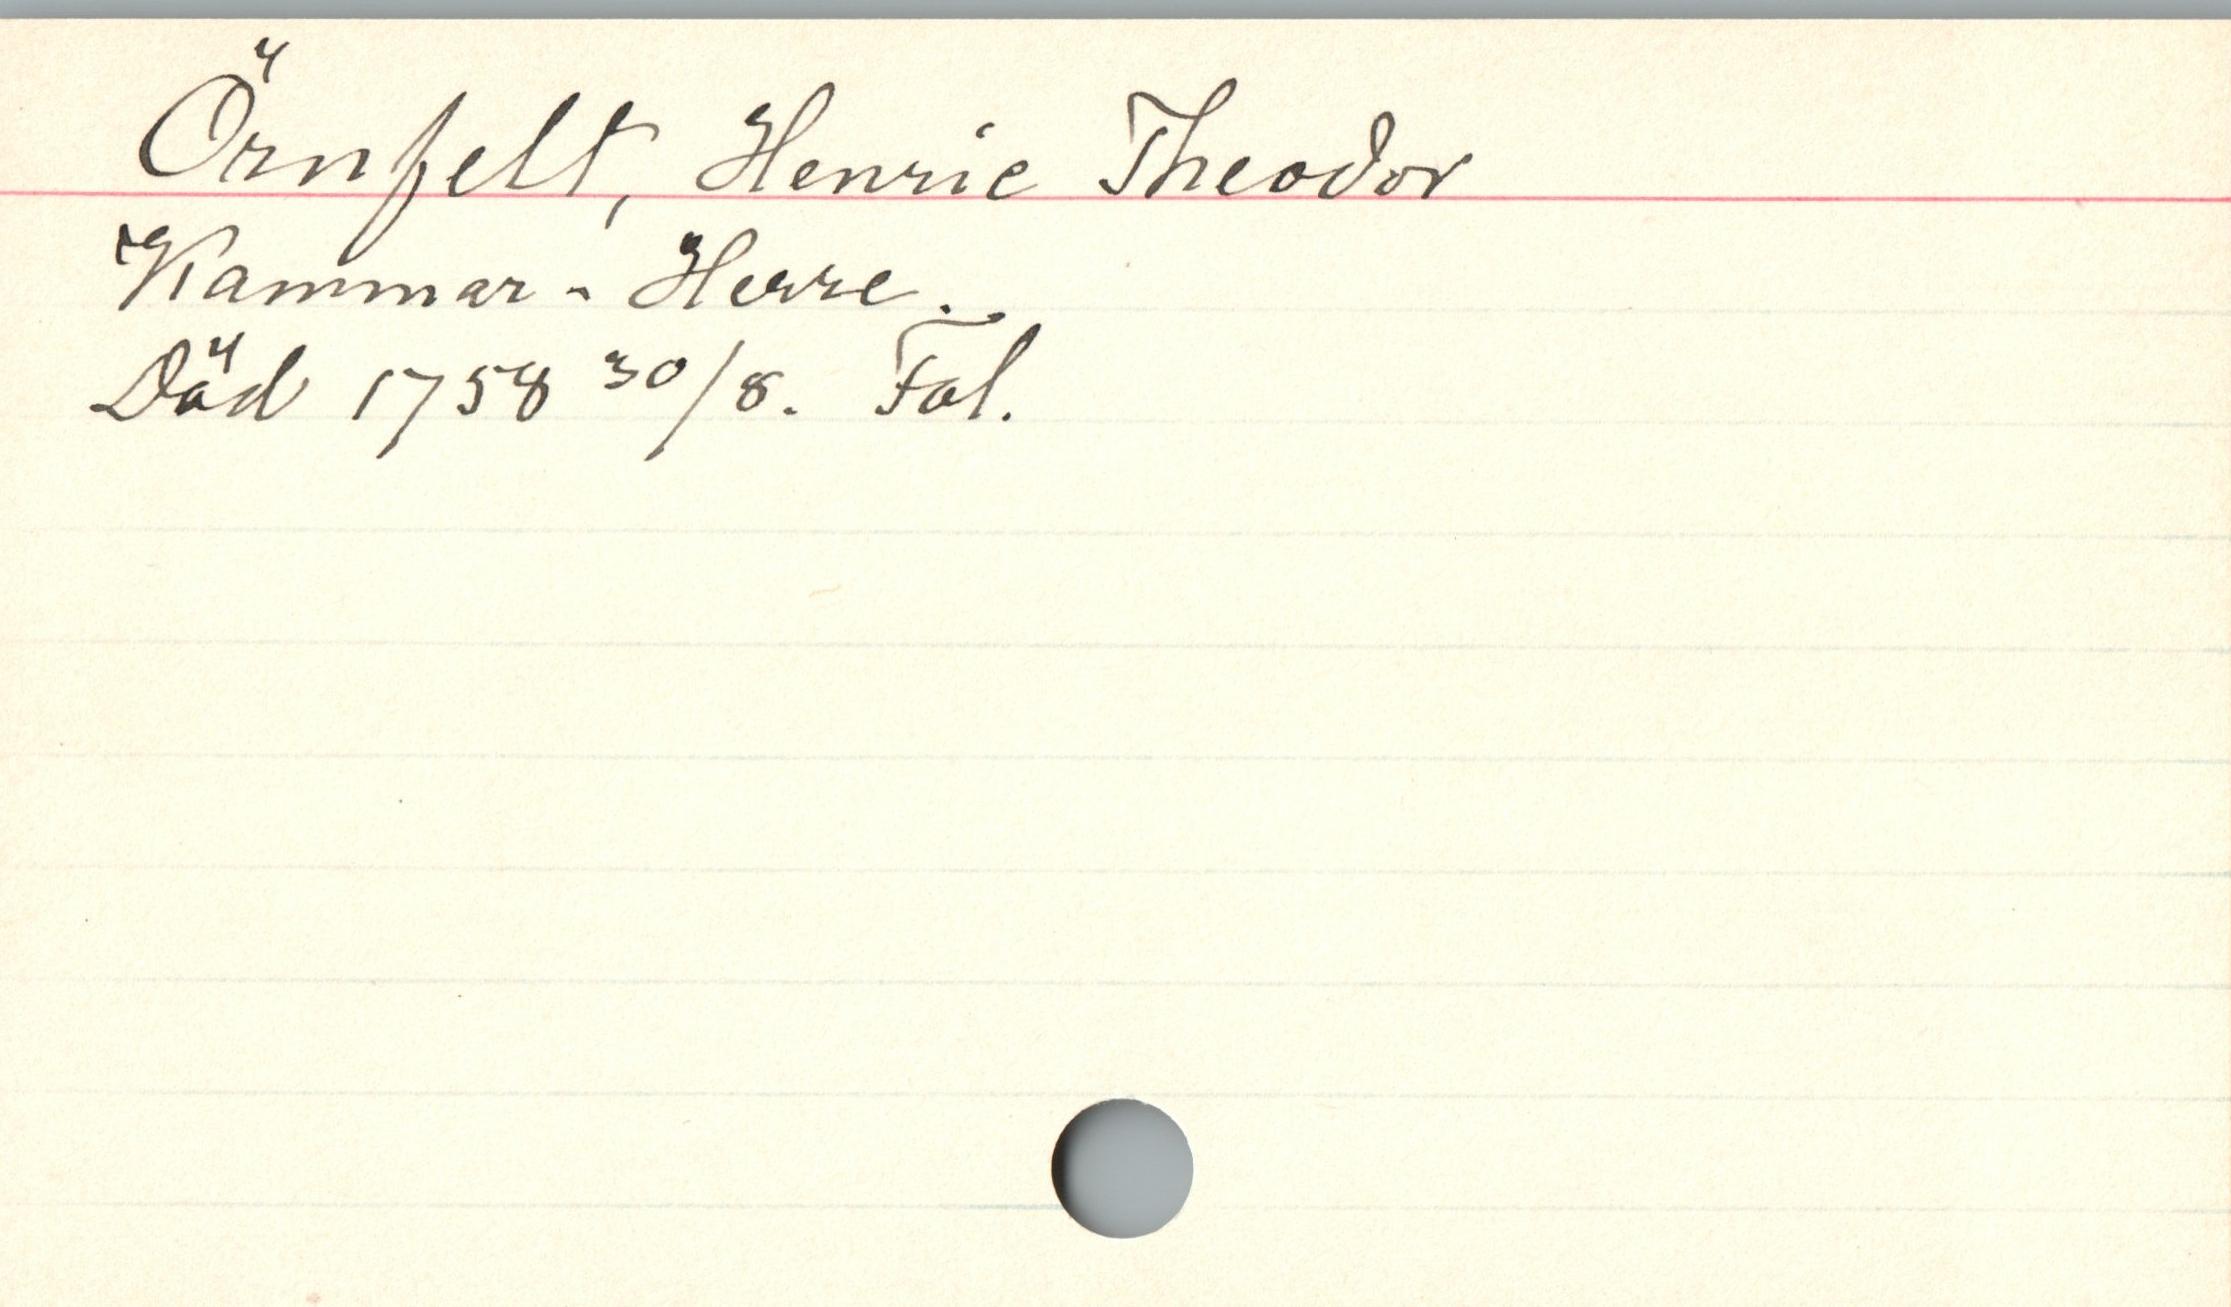 Örnfelt, Henric Theodor
Kammar-Herre.
Död 1758 30/8. Fol.